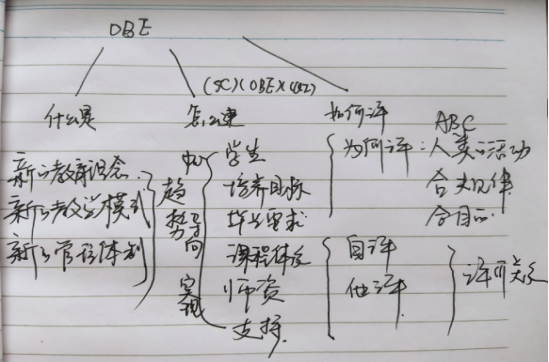 OBE
(SC)(OBE)(CQI)
什么是 怎么建 如何评
ABC
学生 为何评:人类的活动
新的教育理念 培养目标 合规律
新的教学模式 趋势 导向 毕业要求 合目的
新的管理体制 课程体系 自评
实现 师资 他评
支持